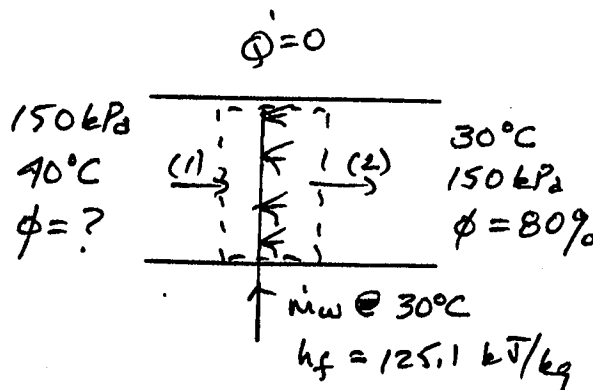 Q̇=0
150 kPa
40°C
ϕ=?
(1)
(2)
30°C
150 kPa
ϕ=80%
ṁw @ 30°C
hf = 125.1 kJ/kg